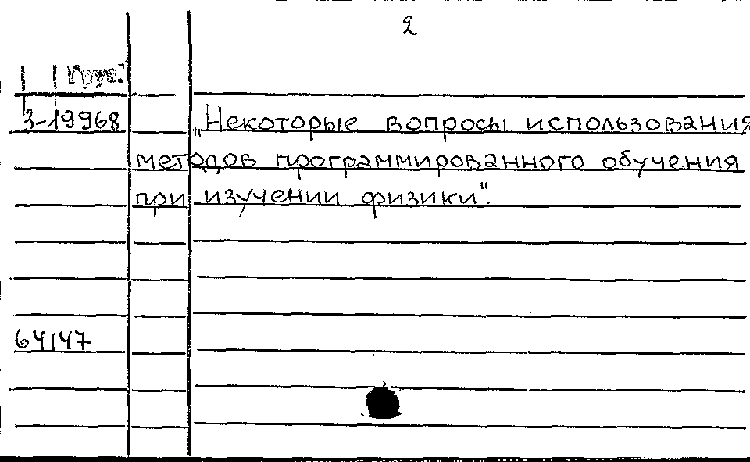 2
3-19968 „Некоторые вопросы использования
методов программированного обучения
при изучении физики".
64147